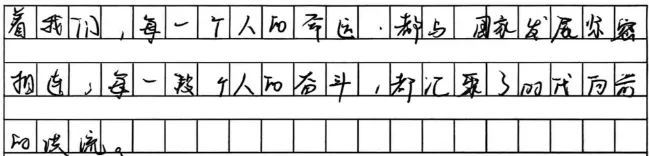 着我们,每一个人的命运.都与国家发展紧密
相连,每一段个人的奋斗,都汇聚了时代向前
的洪流。